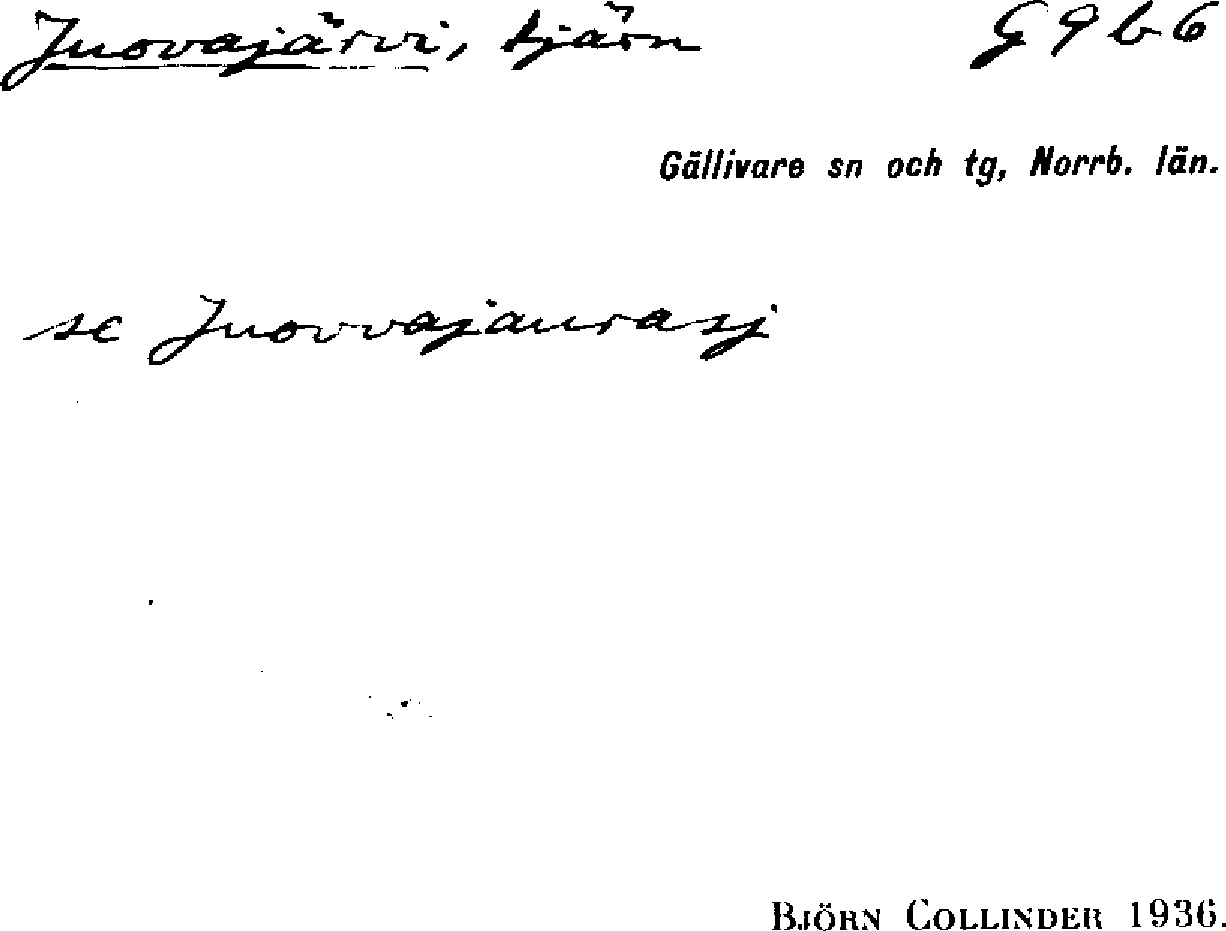 Juovajärvi, tjärn G 9 b 6
Gällivare sn och tg, Norrb. län.
se Juovvajaurasj
BJÖRN COLLINDER 1936.